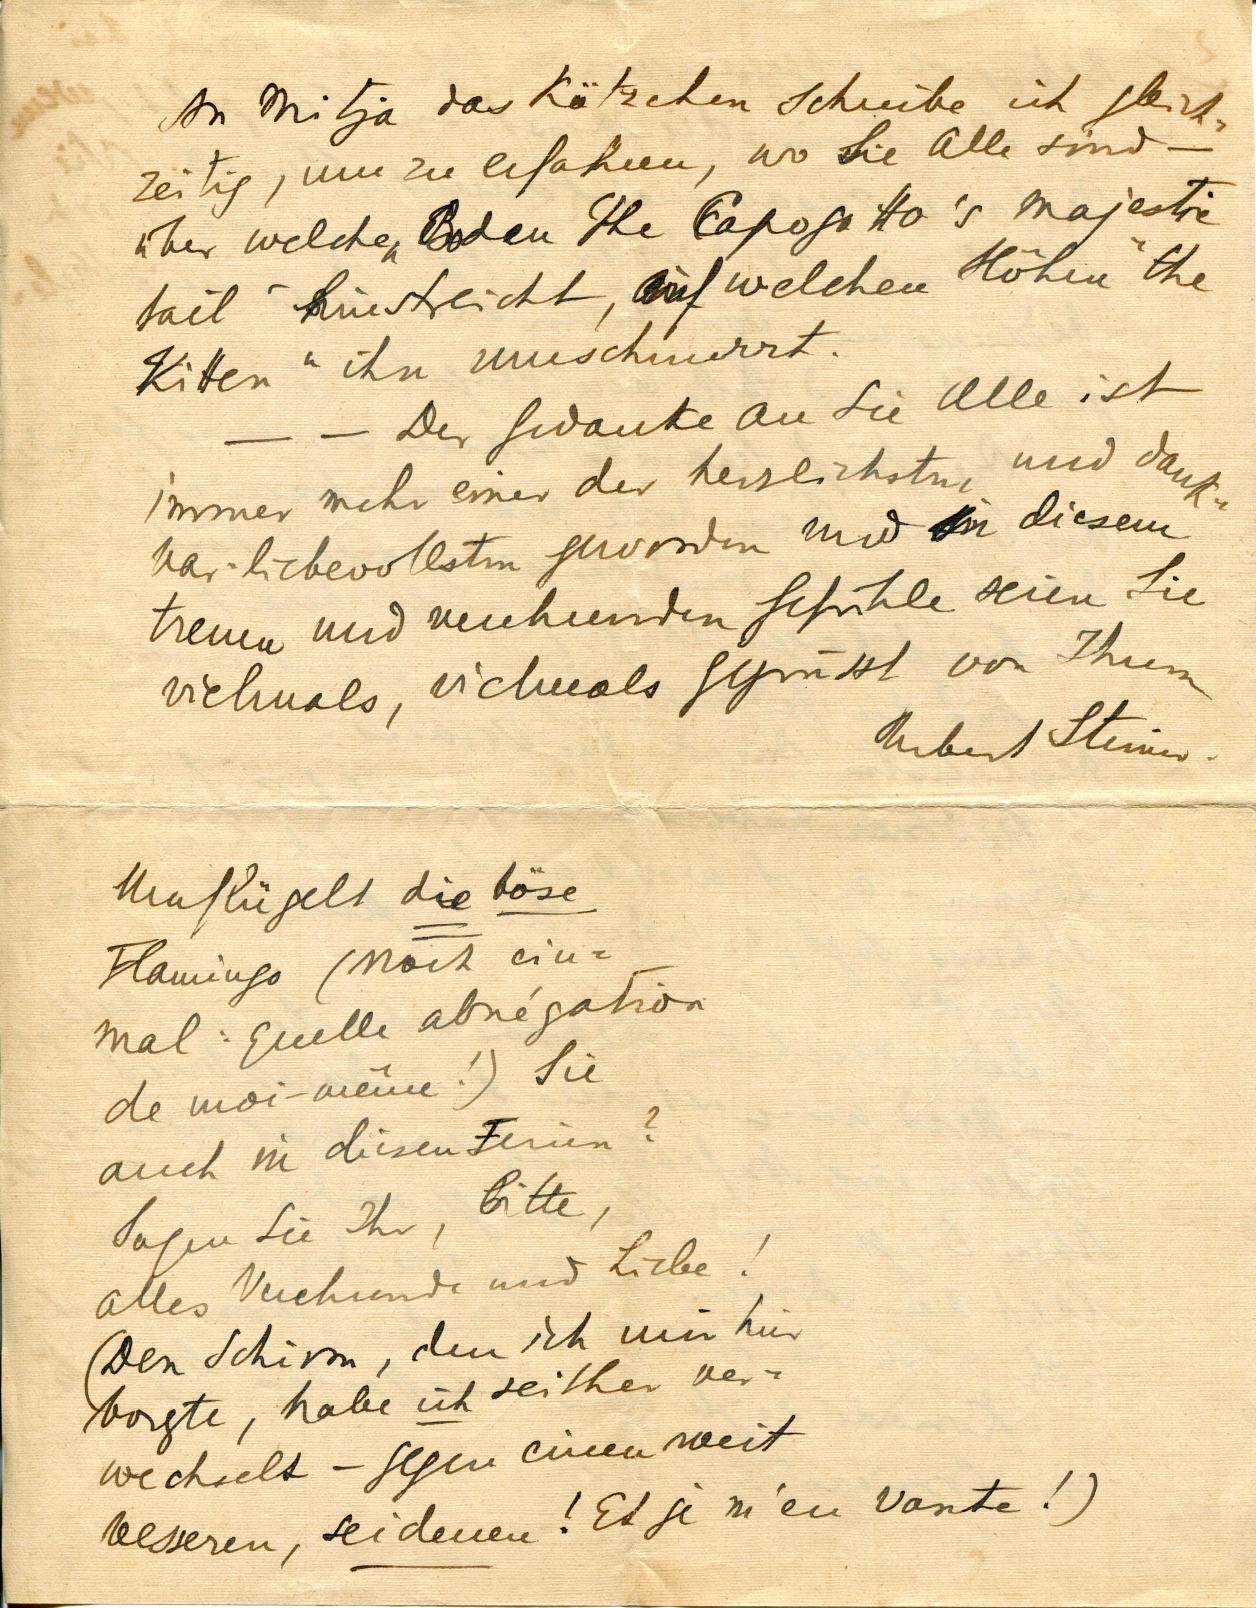 An Mitja das Kätzchen schreibe ich gleich-
zeitig, um zu erfahren, wo Sie Alle sind —
über welchen Boden "The Capogatto's majestic
tail" hinstreicht, auf welchen Höhen "the
Kitten" ihn umschnurrt.
— — Der Gedanke an Sie Alle ist
immer mehr einer der herzlichsten und dank-
bar-liebevollsten geworden und in diesem
treuen und verehrenden Gefühle seien Sie
vielmals, vielmals gegrüsst von Ihrem
Herbert Steiner.
Umflügelt die böse
Flamingo (noch ein-
mal: quelle abnégation
de moi-même!) Sie
auch in diesen Ferien?
Sagen Sie Ihr, bitte,
alles Verehrende und Liebe!
(Den Schirm, den ich mir hier
borgte, habe ich seither ver-
wechselt – gegen einen weit
besseren, seidenen! Et je m'en vante!)